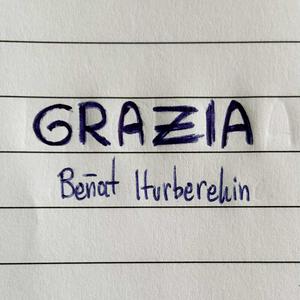 GRAZIA
Beñat Iturberekin